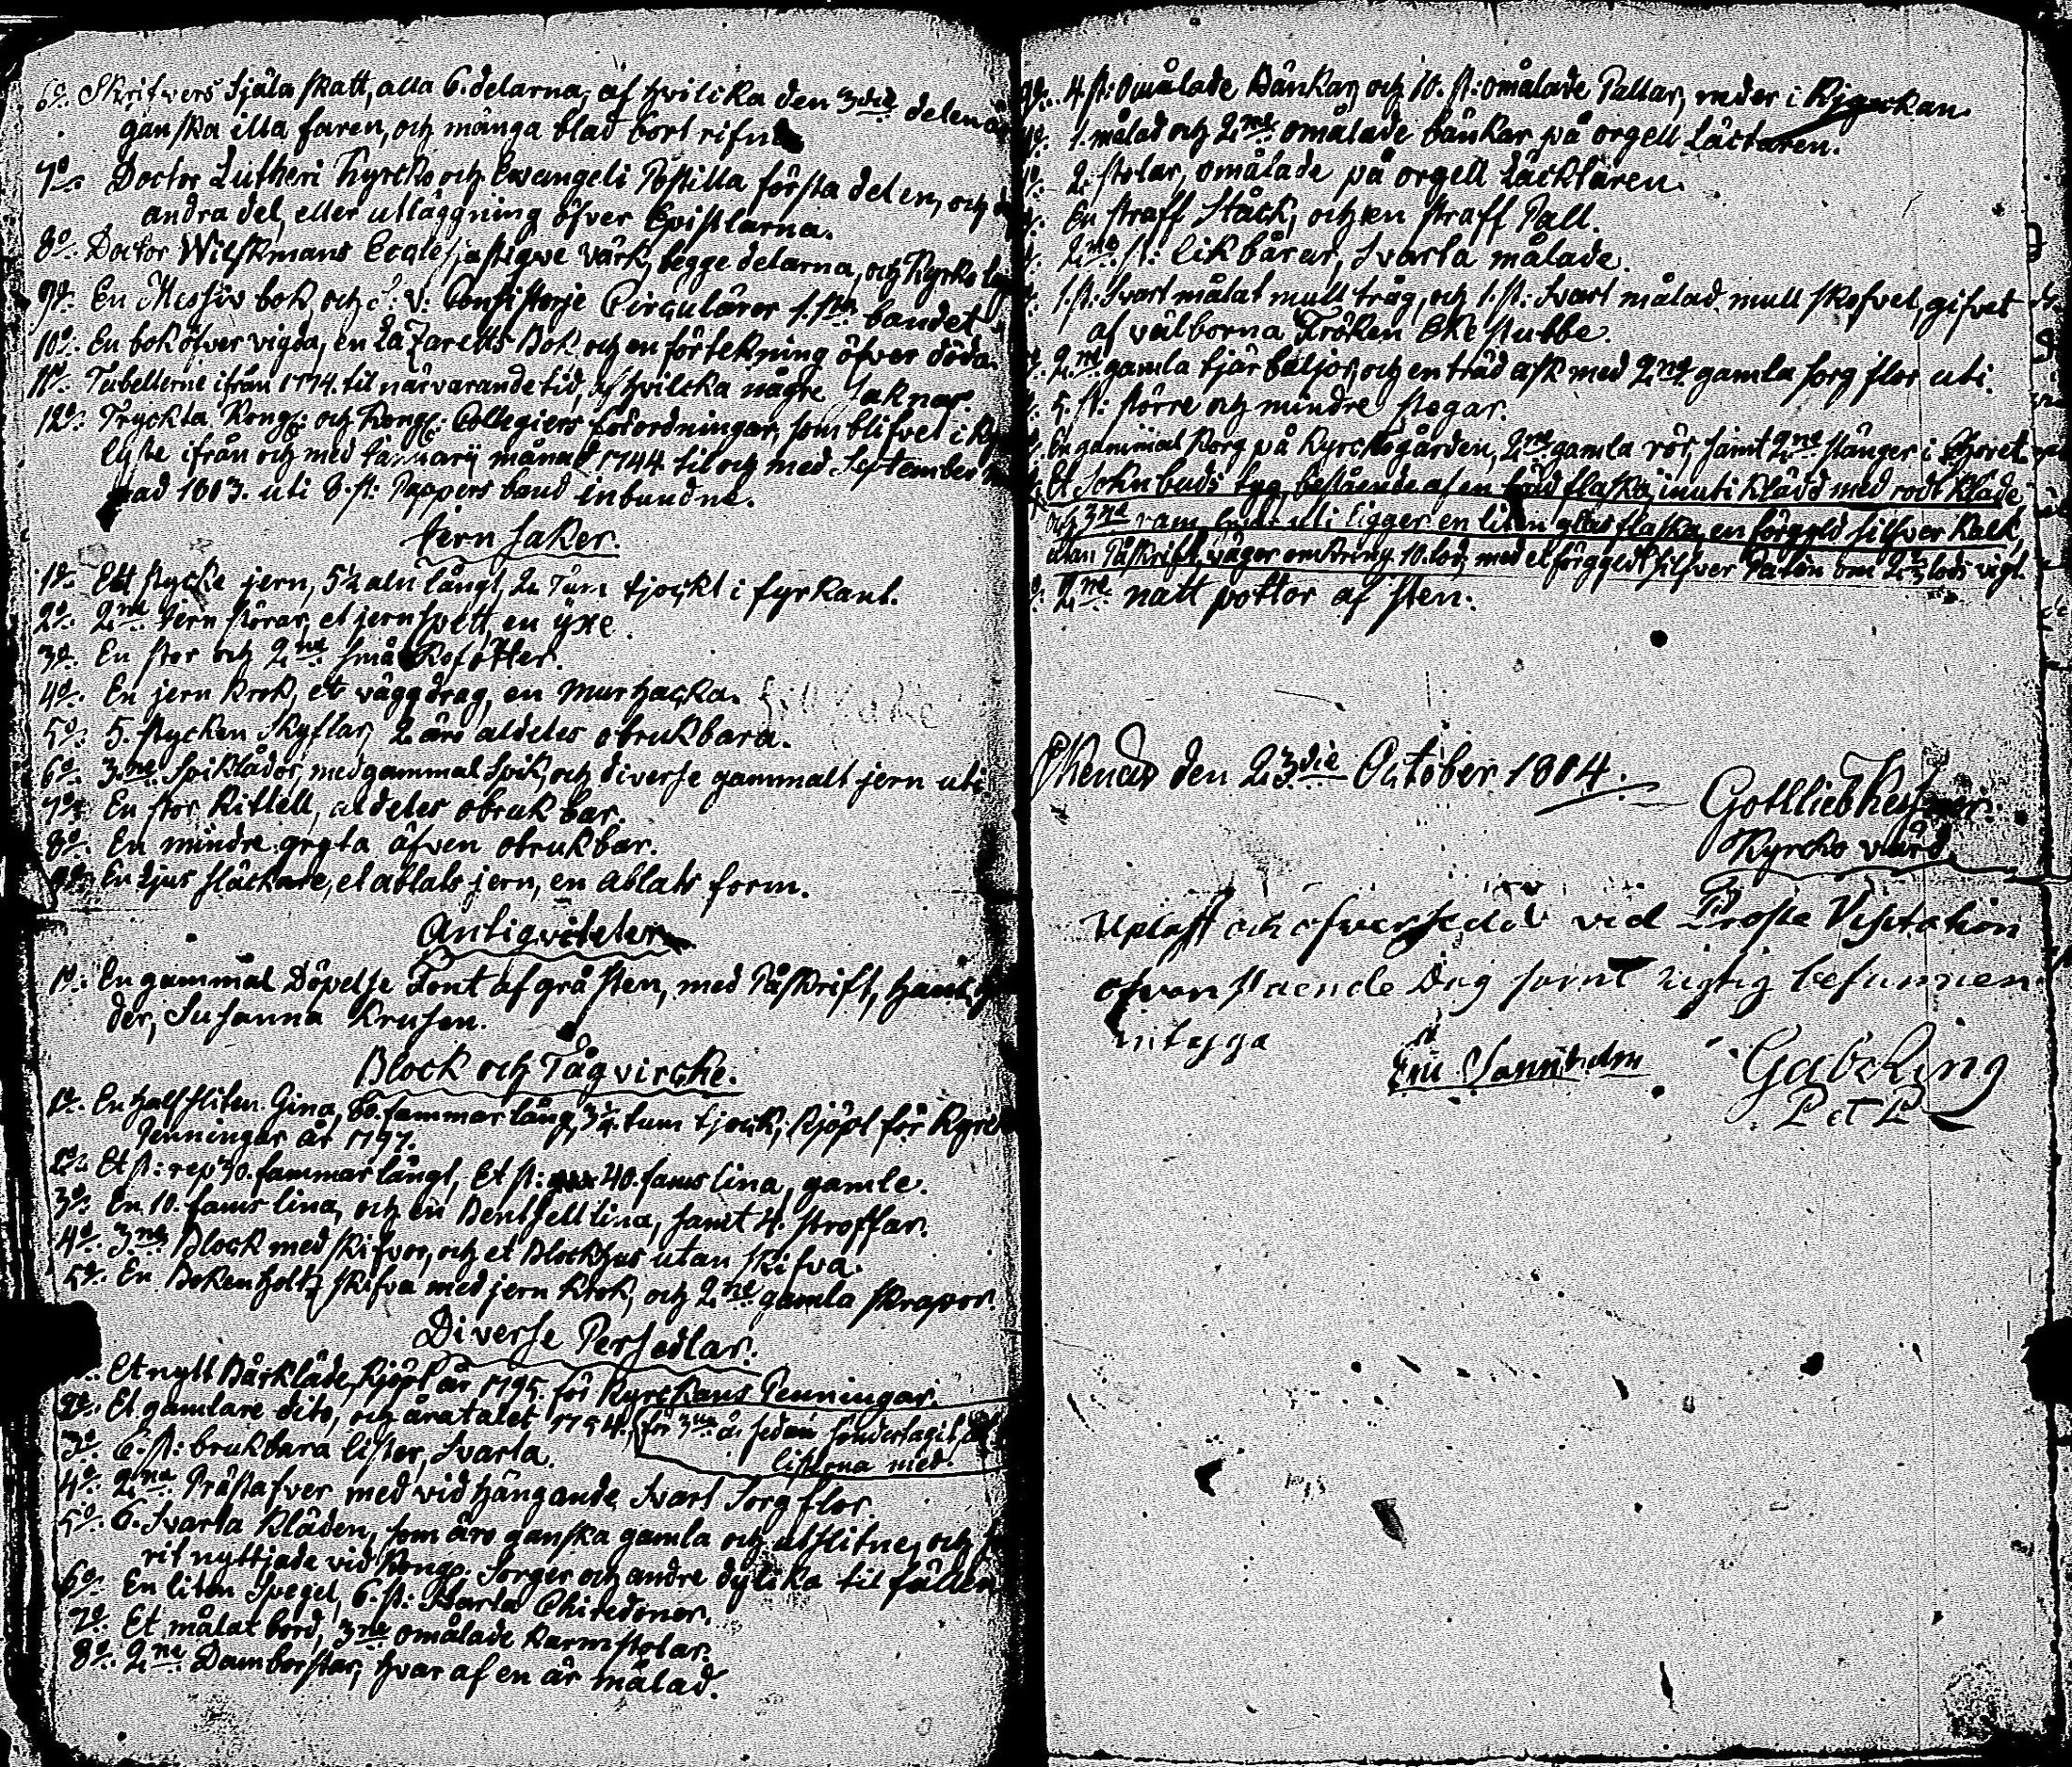 6o. Skrifvers Själa skatt, alla 6. delarna, af hvilcka den 3die delen är
ganska illa faren, och många blad bort rifne
7o. Doctor Lutheri Kyrcko och Ewangeli Postilla första delen, och
andra del, eller utläggning öfver Epistlarna.
8o. Doctor Wilskmans Ecclesjastiqve värk, begge delarna, och Kyrko
9o. En Messiv bok, och Consistorje Circulärer 1. bandet
10o. En bok öfver vigda, en Lazaretts Bok och en förtekning öfver döda.
11o. Tabellerne ifrån 1774. til närvarande tid, af hvilcka någre saknas.
12o. Tryckta Kongl: och Kongl: Collegiers förordningar, som blifvet i
lyste ifrån och med Januarij månad 1744 til och med September
ad 1803. uti 8. st: Pappers band inbundne.
Jern saker.
1o. Ett stycke jern, 5½ aln långt, 2. Tum tjockt i fyrkant.
2o. 2ne Jern störar, et jernspett, en yxe.
3o. En stor och 2ne små Kofötter.
4o. En jern krok, et väggdrag, en Murhacka.
5o. 5. stycken Skyflar, 2 äro aldeles obrukbara.
6o. 3ne Spiklådor, med gammal Spik, och diverse gammalt jern uti
7o. En stor Kittell, aldeles obrukbar.
8o. En mindre gryta äfven obrukbar.
9o. En Ljus släckare, et ablats jern, en ablats form.
Antiqviteter
1o. En gammal Döpelse Font af grå sten, med Påskrift,
der, Susanna Krusen.
Block och Tågvircke.
1o. En half sliten Gina, 60. fammar lång, 3¼. tum tjock, kjöpt för Kyrck
Penningar år 1797.
2o. Et st: rep 30. fammar långt, Et st: 40. fams lina, gamle.
3o. En 10. fams lina, och en Bentsell lina, samt 4. stroffar.
4o. 3ne Block med skifvor, och et Blockhus utan skifva.
5o. En Bokenholtz skifva med jern krok, och 2ne gamla skrapor.
Diverse Persedlar.
Et nytt Bårkläde, kjöpt år 1795. för Kyrckans Penningar.
2o. Et gamlare dito, och åratalet 1754. för 3ne år sedan söndertagit
listerna med.
3o. 6. st: brukbara lister, Svarta.
4o. 2ne Prästafver med vidhängande Svart Sorg flor.
5o. 6. Svarta kläden, som äro ganska gamla och utslitne, och
rit nyttjade vid Kongl. Sorger och andre dylika til fällen
6o. En liten Spegel, 6. st: Svarta Chiredoner.
7o. Et målat bord, 3ne omålade karmstolar.
8o. 2ne Damborstar, hvar af en är målad.
4 st: Omålade Bänkar, och 10. st: omålade Pallar, neder i Kyrckan.
1. målad och 2ne omålade bänkar på orgell Läctaren.
2. stolar, omålade på orgell Läcktaren.
En straff Ståck, och en straff Pall.
2ne st: likbårar, Svarta målade.
1. st: Svart målat mull tråg, och 1. st: Svart målad mull skofvel, gifvet
af välborna Fröken Ekestubbe.
2ne gamla tjär baljor, och en träd ask med 2ne gamla sorg flor uti.
5. st: större och mindre stegar.
En gammal Korg på Kyrckogården, 2ne gamla rör, samt 2ne stänger i Choret.
Et Sokn buds tyg, bestående af en träd flaska, inuti klädd med rodt kläde
och 3ne rum, hvar uti ligger en liten glas flaska, en förgyld silfver kalk,
utan Påskrift, väger omkring 10. lod, med et förgyldt silfver Paten om 2½ lods vigt.
2ne natt pottor af Sten.
Ekenäs den 23die October 1804.
Gottlieb
Kyrcko värd
Upläst och öfversedd vid Prosta Visitation
ofvanstaende Dag samt rigtig befunnen
intyga
Gab King
P et P